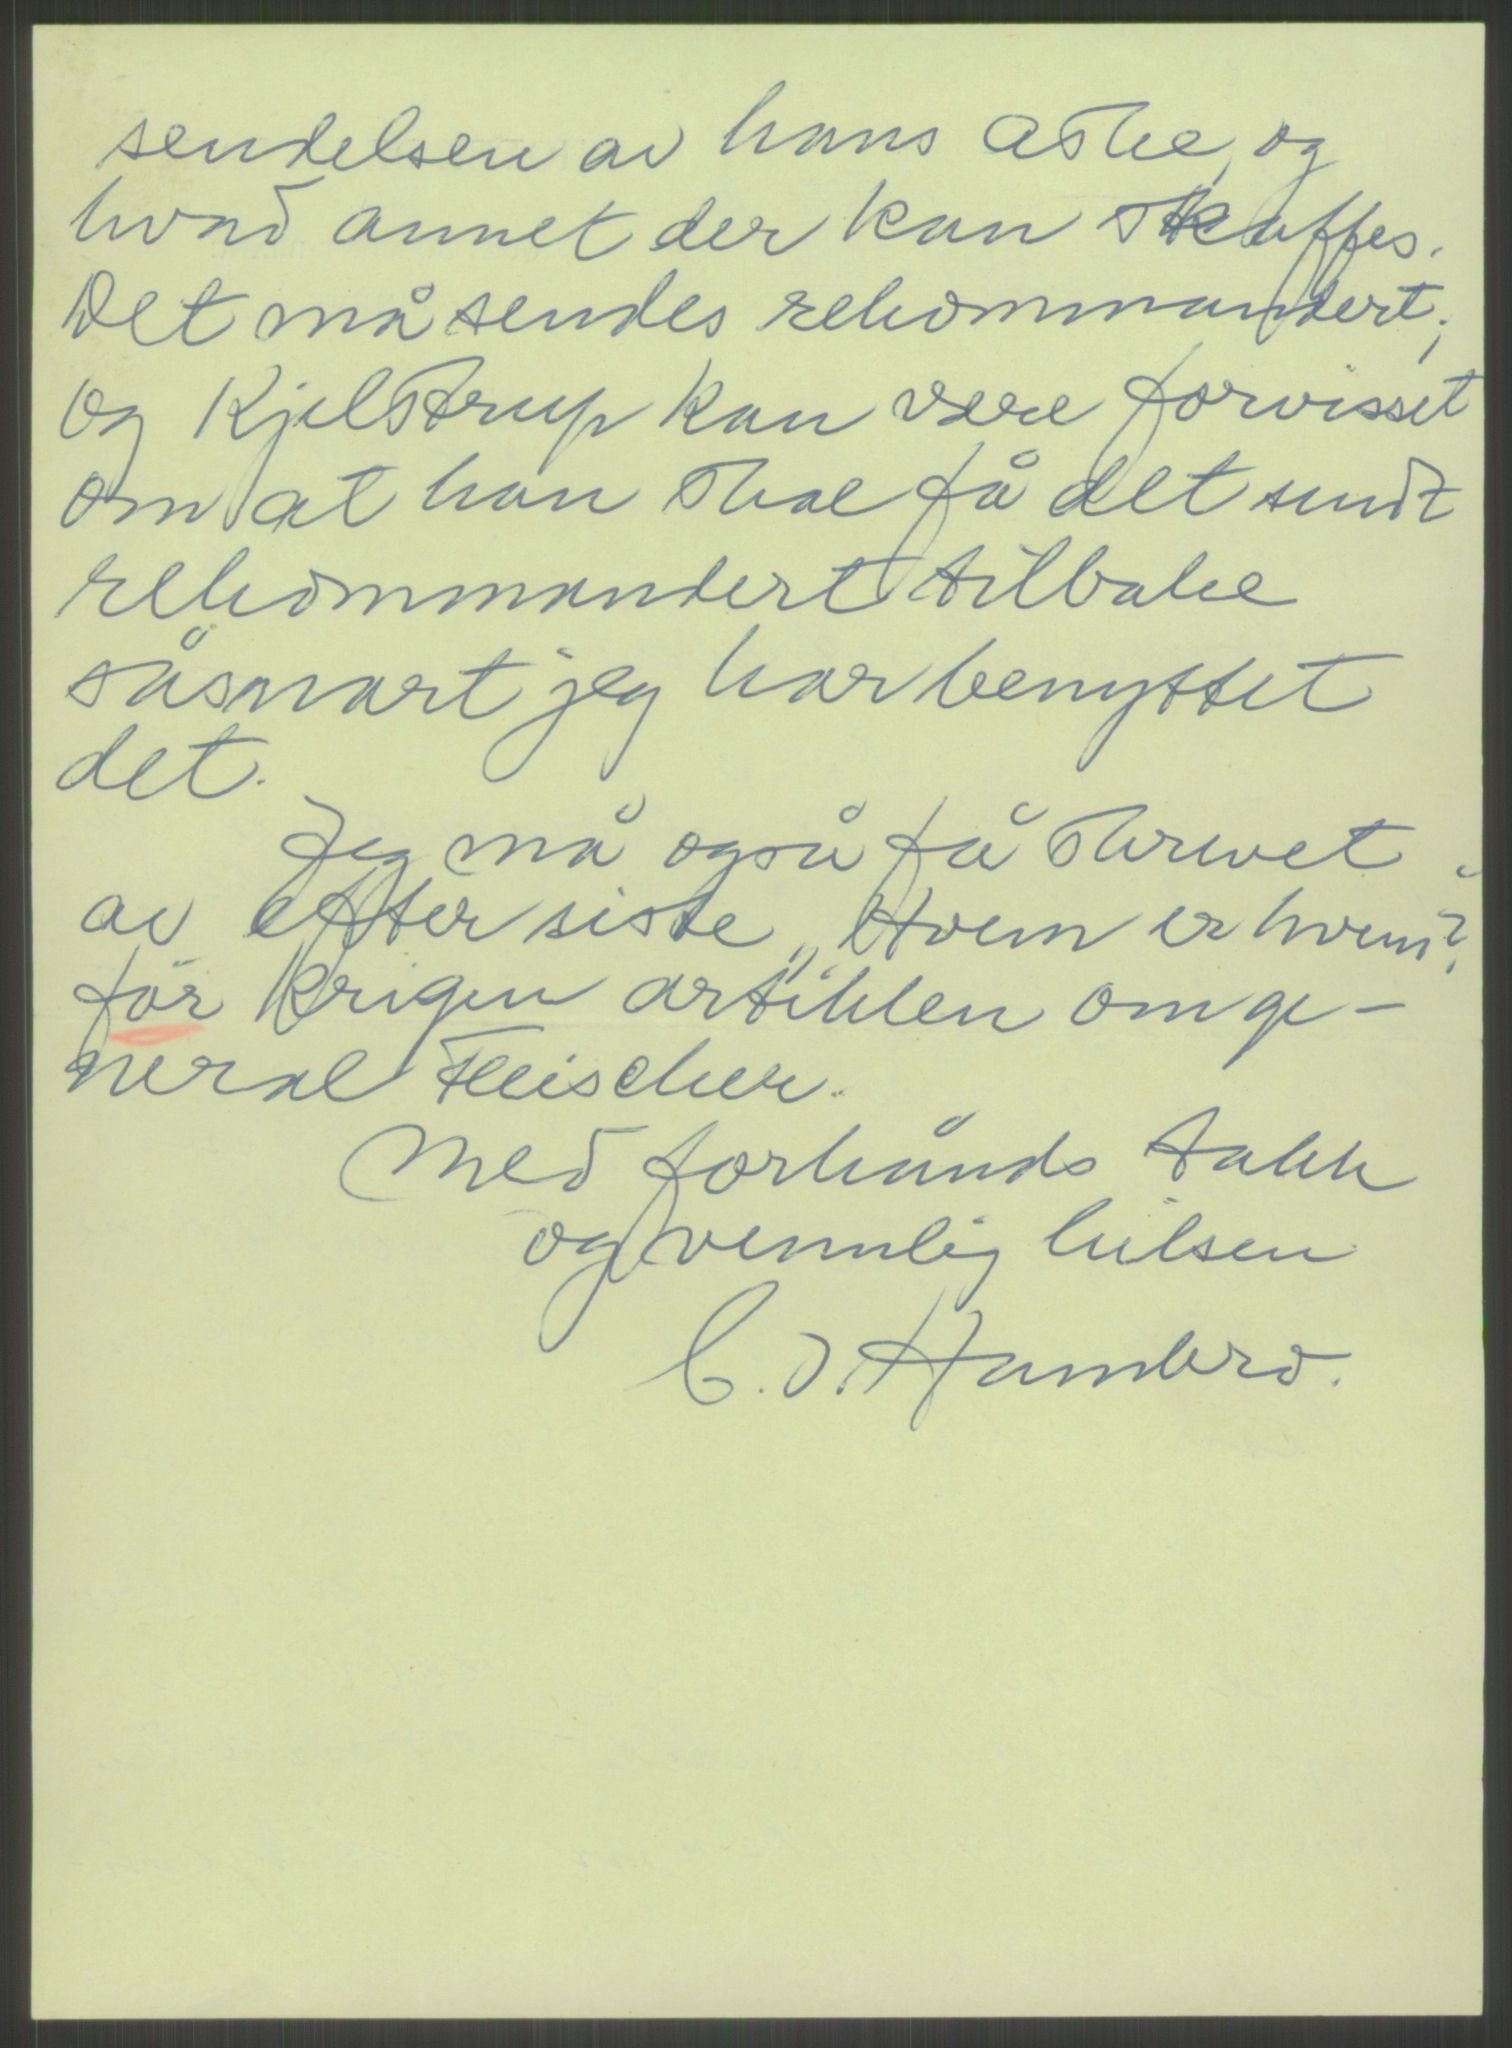 sendelsen av hans aske, og
hvad annet der kan skaffes.
Det må sendes rekommandert;
og Kjelstrup kan være forvisset
om at han skal få det sendt
rekommandert tilbake
såsnart jeg har benyttet
det.
Jeg må også få skrevet
av efter siste „Hvem er hvem?"
før krigen artiklen om ge-
neral Fleischer.
Med forhånds takk
og vennlig hilsen
C. J. Hambro.